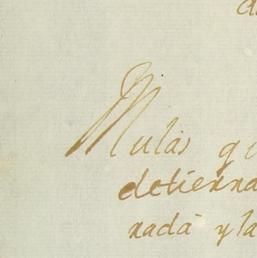 Mulas
detierra
nada y la